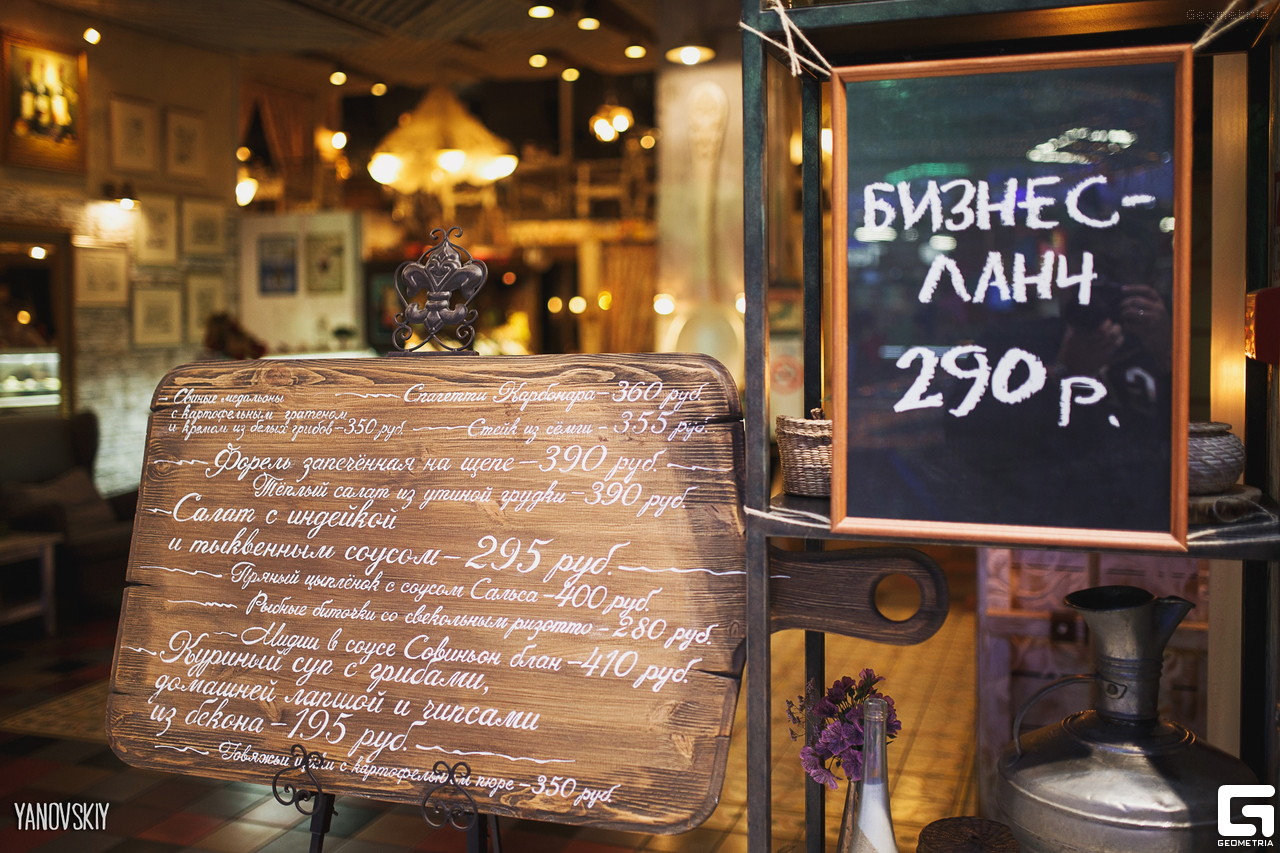 Geometria
БИЗНЕС-
ЛАНЧ
290 р.
Свиные медальоны
с картофельным гратеном
и кремом из белых грибов – 350 руб.
Спагетти Карбонара – 360 руб.
Стейк из сёмги – 355 руб.
Форель запечённая на щепе – 390 руб.
Тёплый салат из утиной грудки – 390 руб.
Салат с индейкой
и тыквенным соусом – 295 руб.
Пряный цыплёнок с соусом Сальса – 400 руб.
Рыбные биточки со свекольным ризотто – 280 руб.
Мидии в соусе Совиньон блан – 410 руб.
Куриный суп с грибами,
домашней лапшой и чипсами
из бекона – 195 руб.
Говяжьи с картофельным пюре – 350 руб.
YANOVSKIY
G
GEOMETRIA